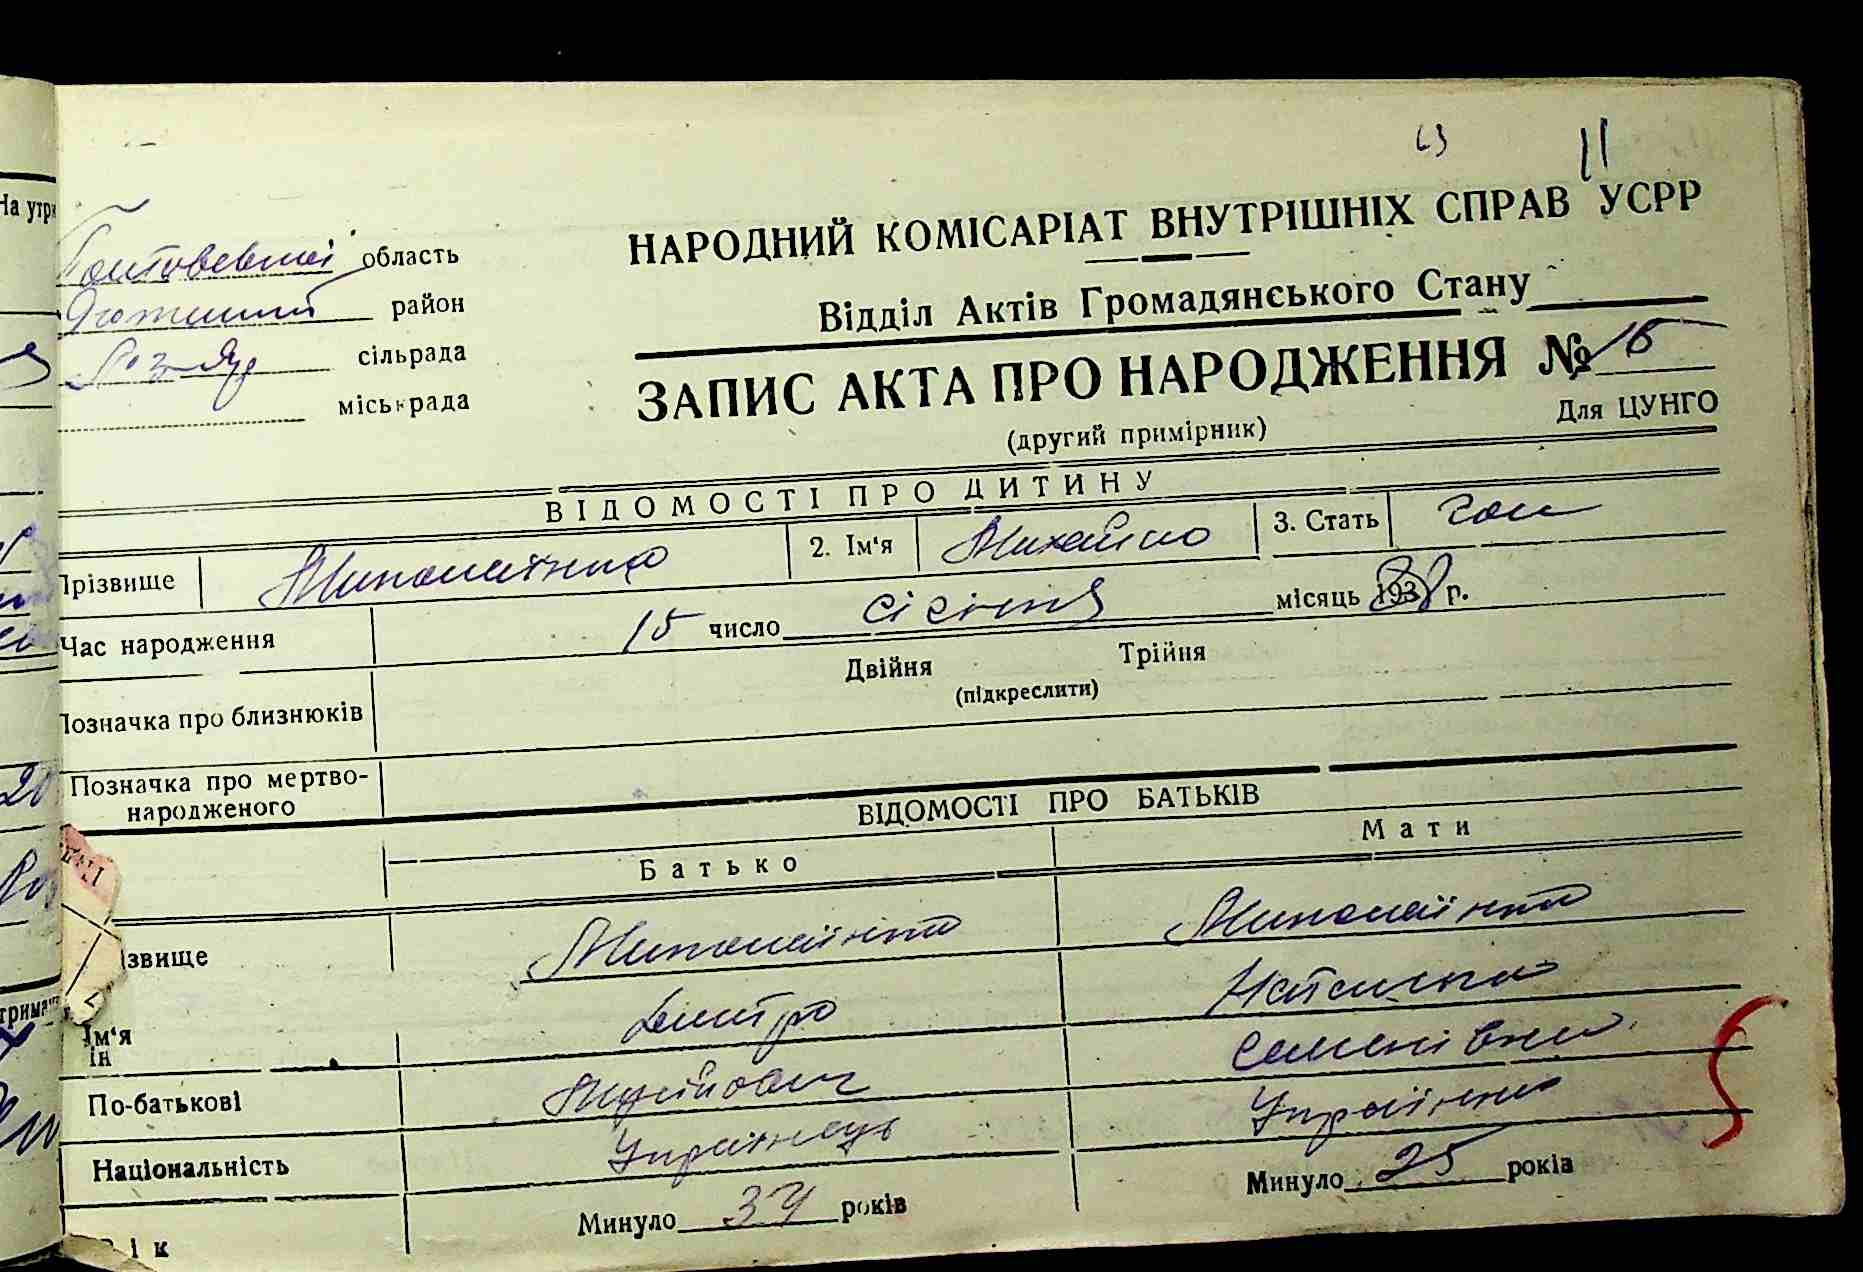 63 11
На утри
Полтавської область
Яготинский район
сільрада
міськрада
НАРОДНИЙ КОМІСАРІАТ ВНУТРІШНІХ СПРАВ УСРР
Відділ Актів Громадянського Стану
ЗАПИС АКТА ПРО НАРОДЖЕННЯ № 16
(другий примірник)
Для ЦУНГО
ВІДОМОСТІ ПРО ДИТИНУ
Прізвище Миколаїнко 2. Ім'я Михайло 3. Стать чол
Час народження 15 число січня місяць 1938 р.
Позначка про близнюків Двійня Трійня
(підкреслити)
Позначка про мертво-
народженого
ВІДОМОСТІ ПРО БАТЬКІВ
Батько Мати
звище Миколаїнко Миколаїнко
Ім'я Дмитро Наталка
Ін
По-батькові Семенівна
Національність Українець Українка
Вік Минуло 34 років Минуло 25 років